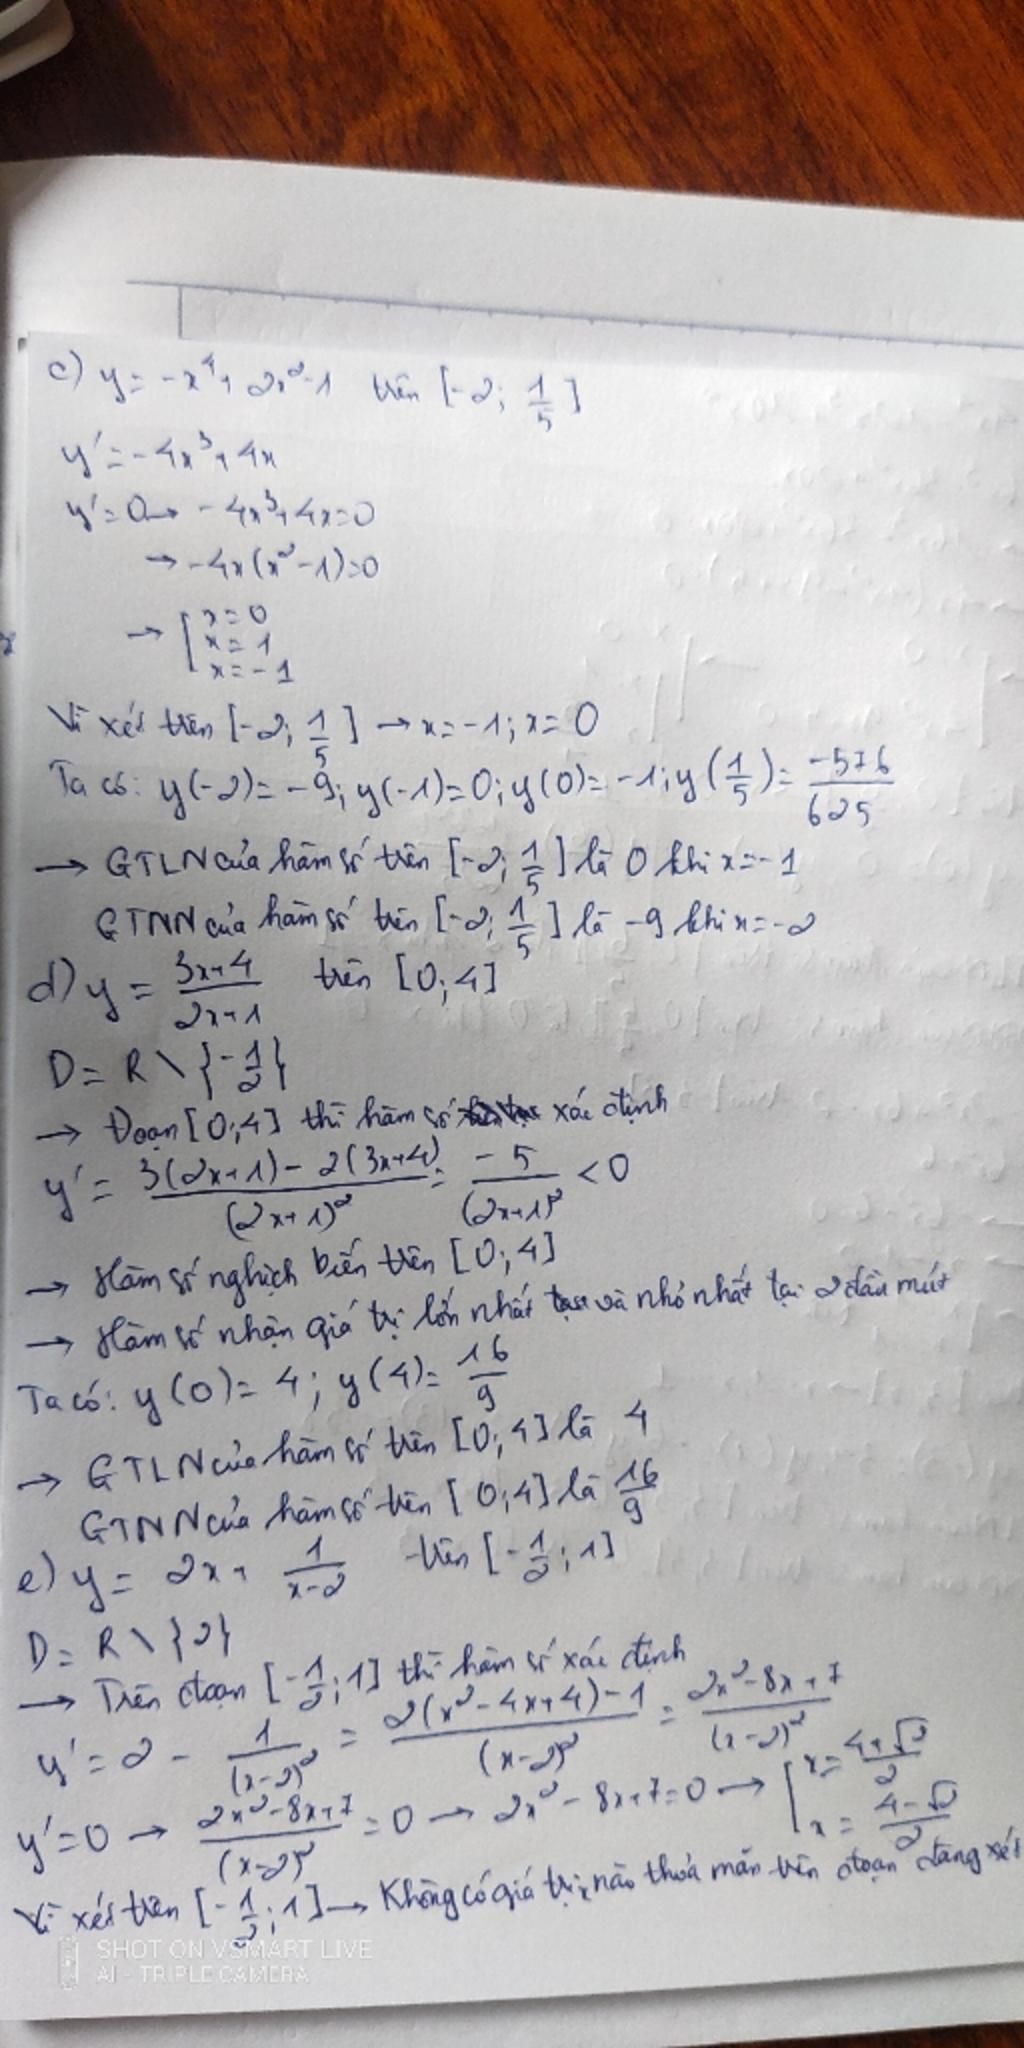 c) y = -x⁴ + 2x² - 1 trên [-2; 1/5]
y' = -4x³ + 4x
y' = 0 → -4x³ + 4x = 0
→ -4x(x² - 1) = 0
→ [ x = 0
x = 1
x = -1
Vì xét trên [-2; 1/5] → x = -1; x = 0
Ta có: y(-2) = -9; y(-1) = 0; y(0) = -1; y(1/5) = -576/625
→ GTLN của hàm số trên [-2; 1/5] là 0 khi x = -1
GTNN của hàm số trên [-2; 1/5] là -9 khi x = -2
d) y = (3x+4)/(2x+1) trên [0; 4]
D = R \ {-1/2}
→ Đoạn [0; 4] thì hàm số xác định
y' = (3(2x+1) - 2(3x+4))/(2x+1)² = -5/(2x+1)² < 0
→ Hàm số nghịch biến trên [0; 4]
→ Hàm số nhận giá trị lớn nhất và nhỏ nhất tại 2 đầu mút
Ta có: y(0) = 4; y(4) = 16/9
→ GTLN của hàm số trên [0; 4] là 4
GTNN của hàm số trên [0; 4] là 16/9
e) y = 2x + 1/(x-2) trên [-1/2; 1]
D = R \ {2}
→ Trên đoạn [-1/2; 1] thì hàm số xác định
y' = 2 - 1/(x-2)² = (2(x² - 4x + 4) - 1)/(x-2)² = (2x² - 8x + 7)/(x-2)²
y' = 0 → (2x² - 8x + 7)/(x-2)² = 0 → 2x² - 8x + 7 = 0 → [ x = (4+√2)/2
x = (4-√2)/2
Vì xét trên [-1/2; 1] → Không có giá trị x nào thỏa mãn trên đoạn đang xét
SHOT ON VSMART LIVE
AI - TRIPLE CAMERA